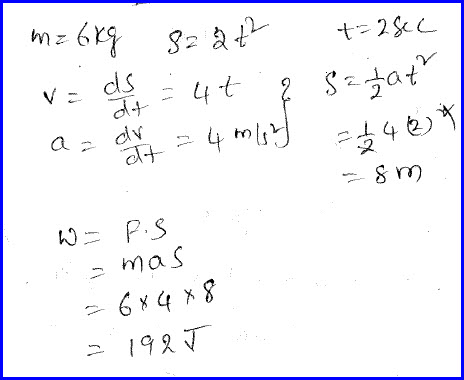 m = 6kg S = 2t² t = 2sec
v = ds/dt = 4t S = ½at²
a = dv/dt = 4 m/s² = ½ 4 (2)²
= 8m
W = F.S
= mas
= 6 × 4 × 8
= 192 J